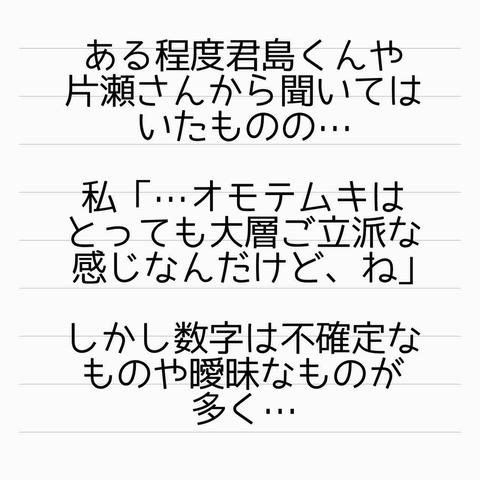 ある程度君島くんや
片瀬さんから聞いては
いたものの…
私「…オモテムキは
とっても大層ご立派な
感じなんだけど、ね」
しかし数字は不確定な
ものや曖昧なものが
多く…